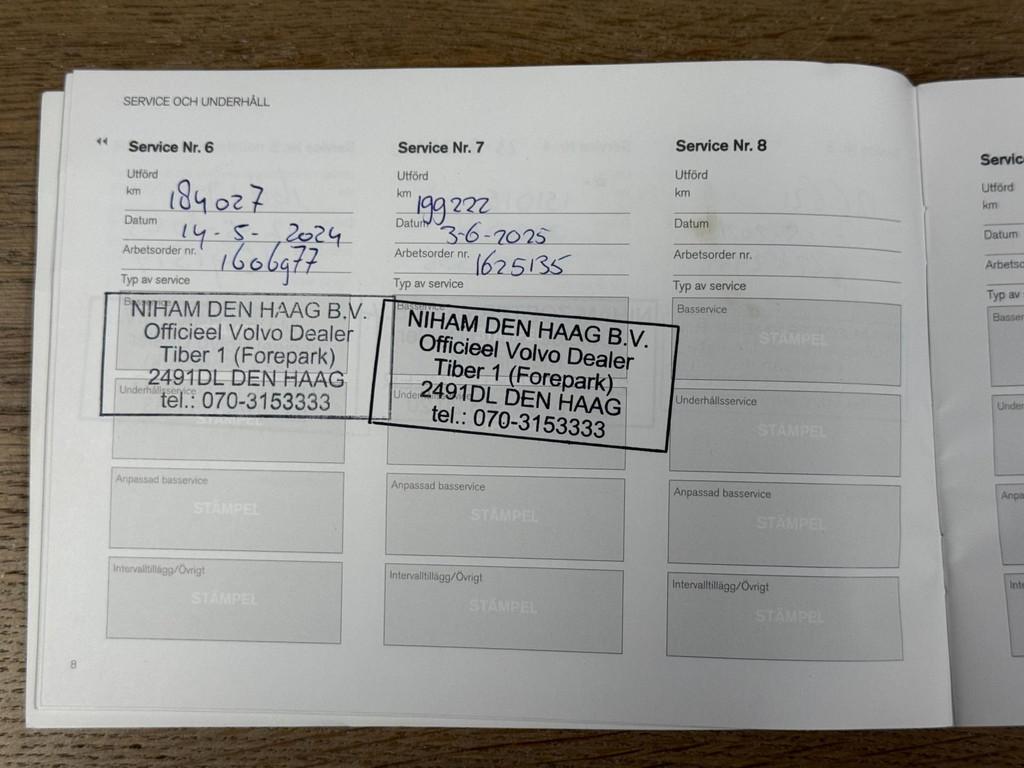 SERVICE OCH UNDERHÅLL
Service Nr. 6
Utförd
km 184027
Datum 14-5-2024
Arbetsorder nr. 1606977
Typ av service
Basservice
NIHAM DEN HAAG B.V.
Officieel Volvo Dealer
Tiber 1 (Forepark)
2491DL DEN HAAG
Underhållsservice
tel.: 070-3153333
STÄMPEL
Anpassad basservice
STÄMPEL
Intervalltillägg/Övrigt
STÄMPEL
8
Service Nr. 7
Utförd
km 199222
Datum 3-6-2025
Arbetsorder nr. 1625135
Typ av service
Basservice
NIHAM DEN HAAG B.V.
Officieel Volvo Dealer
Tiber 1 (Forepark)
2491DL DEN HAAG
tel.: 070-3153333
Anpassad basservice
STÄMPEL
Intervalltillägg/Övrigt
STÄMPEL
Service Nr. 8
Utförd
km
Datum
Arbetsorder nr.
Typ av service
Basservice
STÄMPEL
Underhållsservice
STÄMPEL
Anpassad basservice
STÄMPEL
Intervalltillägg/Övrigt
STÄMPEL
Utförd
km
Datum
Typ av